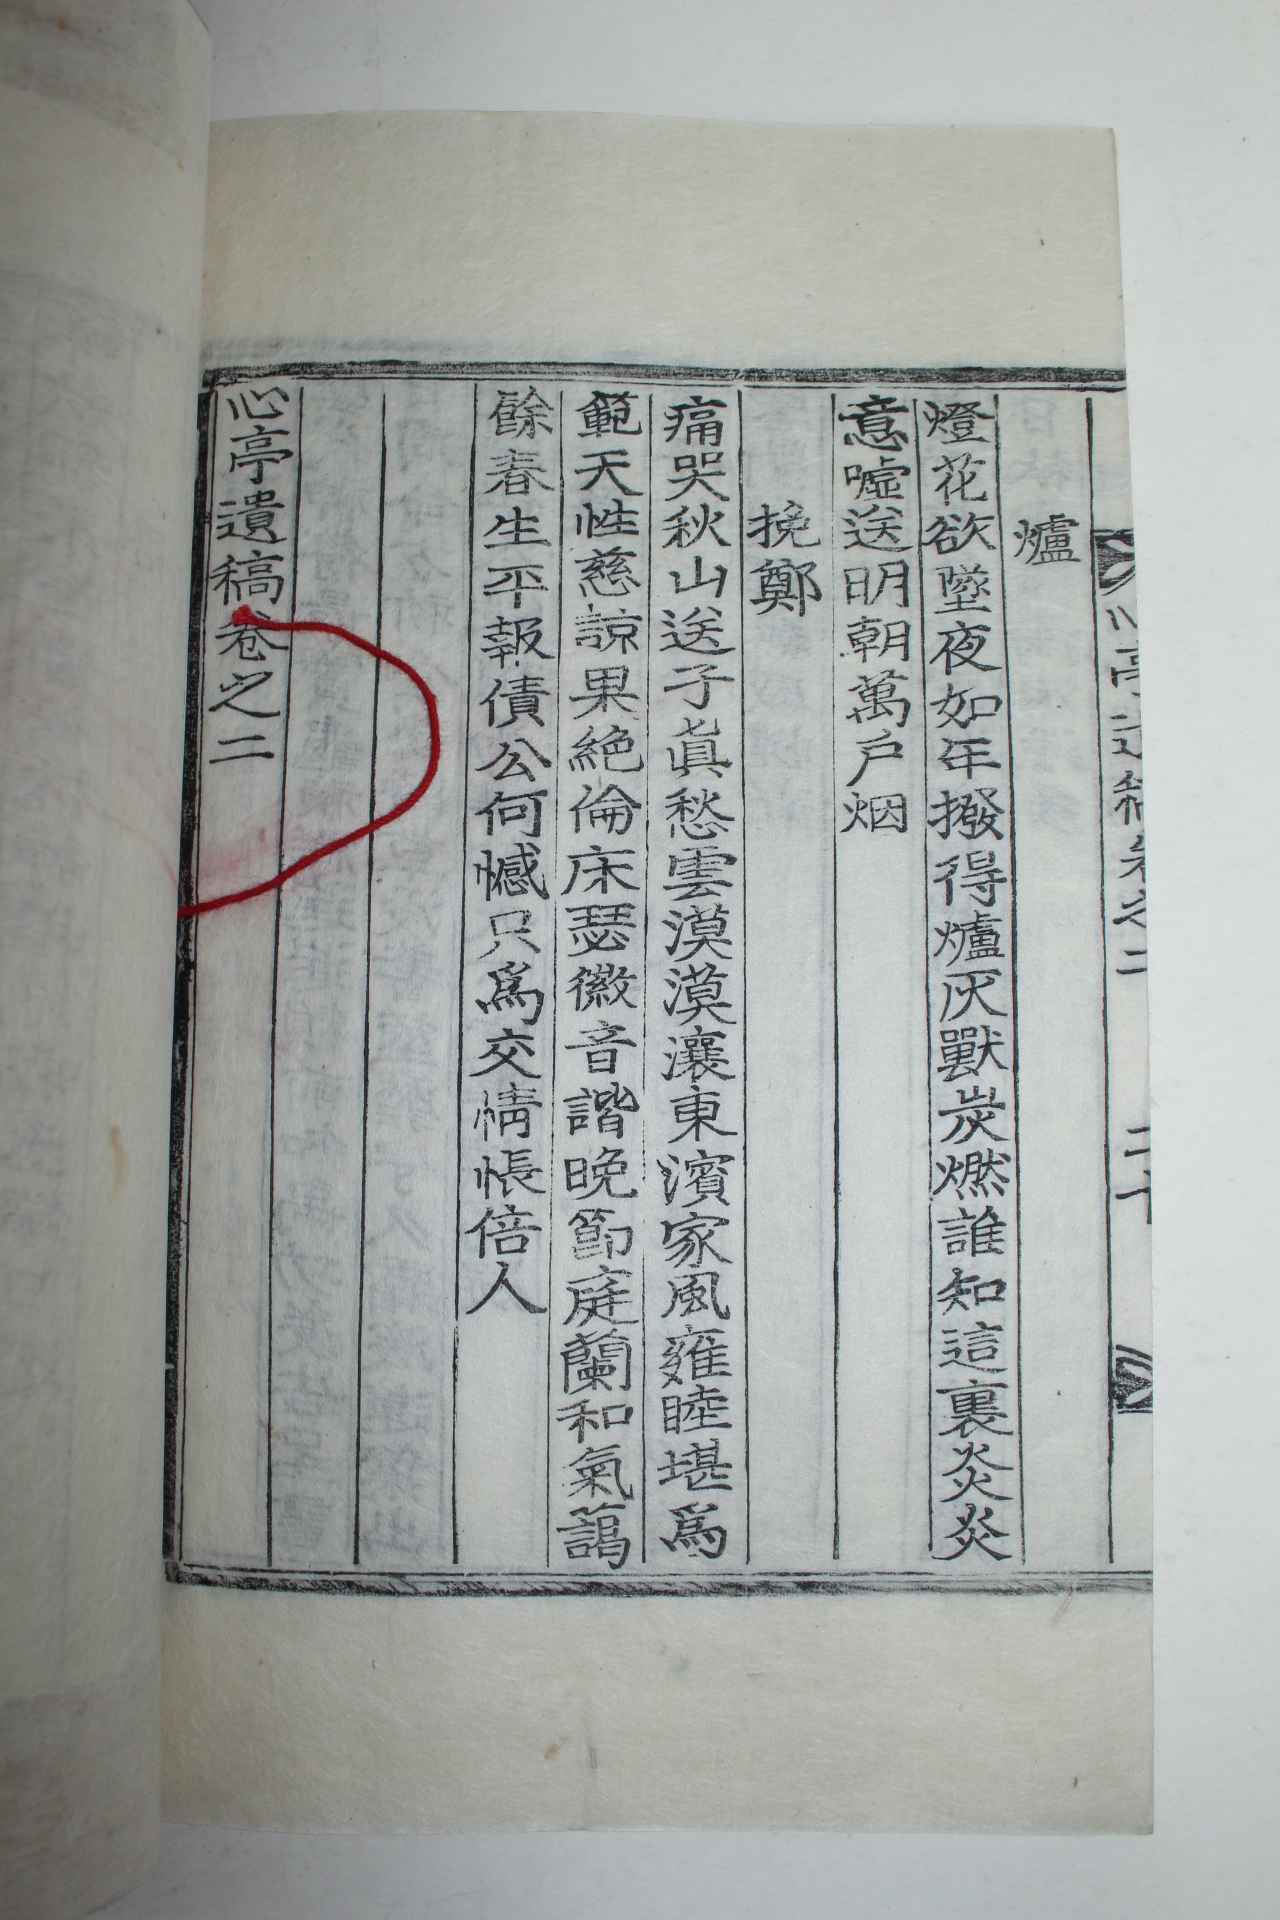 心亭遺稿卷之二
二十
爐
燈花欲墜夜如年撥得爐灰獸炭燃誰知這裏炎炎
意噓送明朝萬戶烟
挽鄭
痛哭秋山送子眞愁雲漠漠瀼東濱家風雍睦堪爲
範天性慈諒果絶倫床瑟徽音諧晩節庭蘭和氣藹
餘春生平報債公何憾只爲交情悵倍人
心亭遺稿卷之二